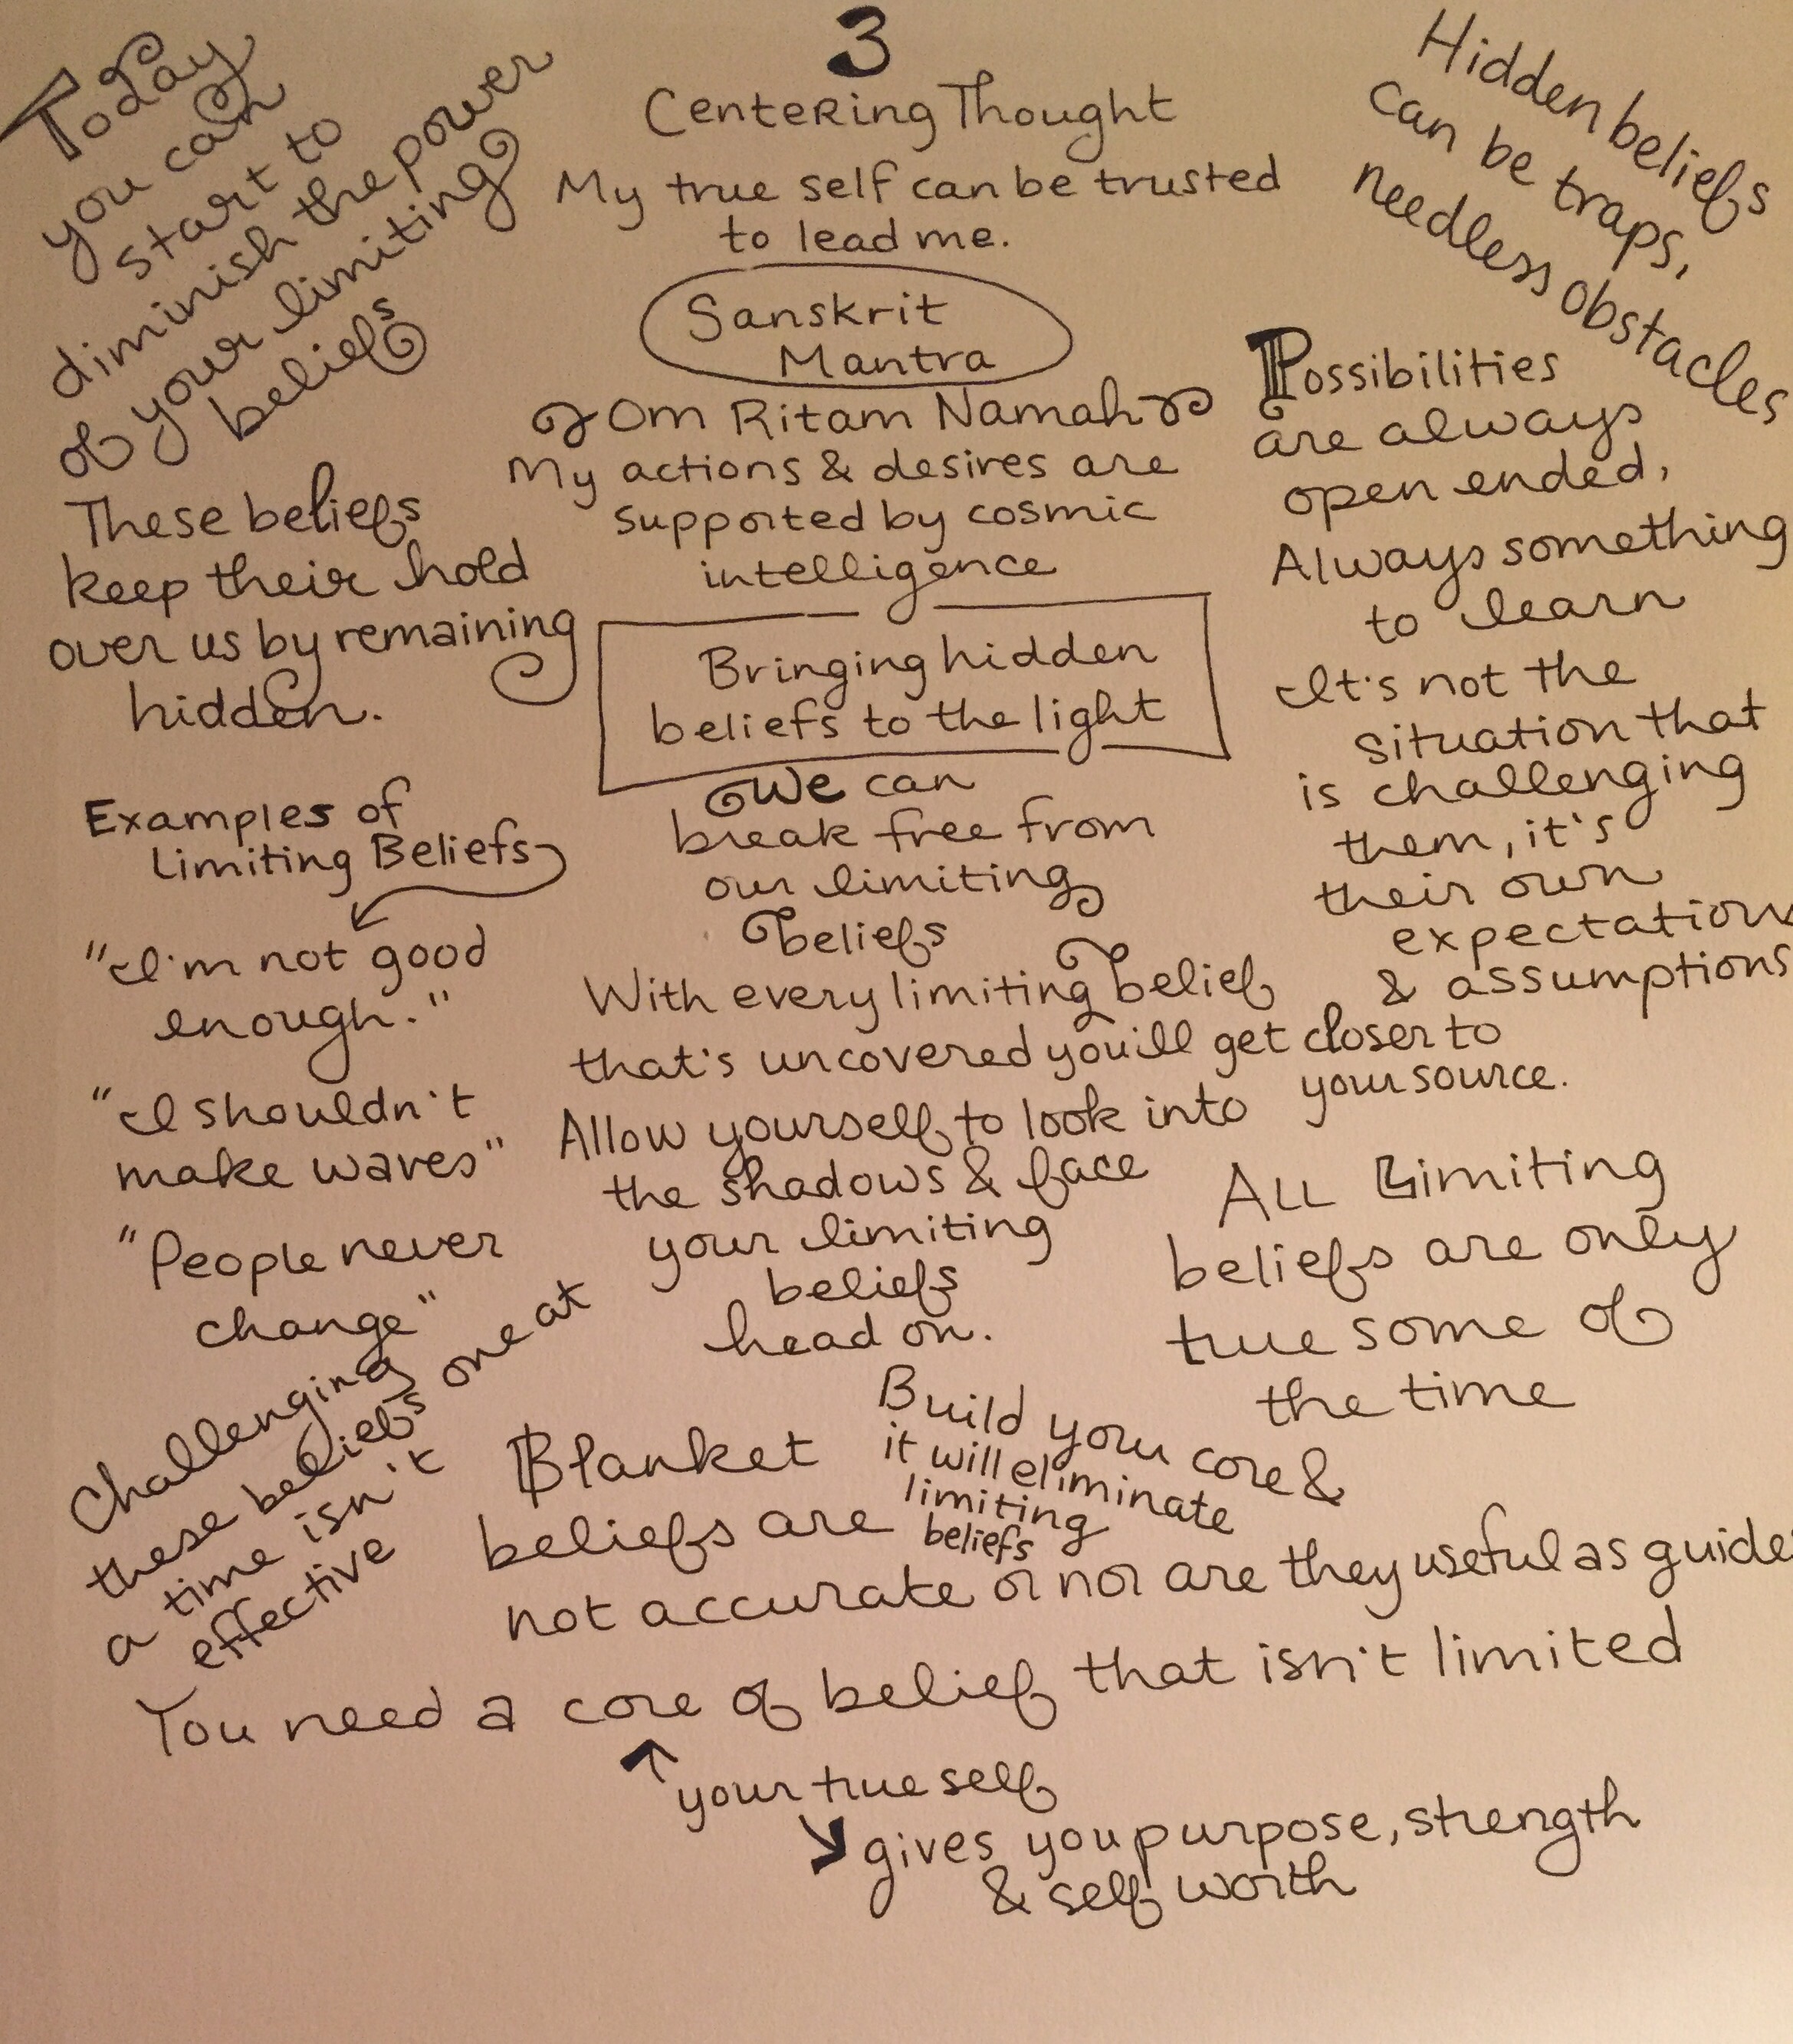 3
Centering Thought
My true self can be trusted
to lead me.
Sanskrit
Mantra
Om Ritam Namah
My actions & desires are
supported by cosmic
intelligence
Bringing hidden
beliefs to the light
We can
break free from
our limiting
beliefs
With every limiting belief
that's uncovered you'll get closer to
your source.
Allow yourself to look into
the shadows & face
your limiting
beliefs
head on.
Today
you can
start to
diminish the power
of your limiting
beliefs
These beliefs
keep their hold
over us by remaining
hidden.
Examples of
Limiting Beliefs
"I'm not good
enough."
"I shouldn't
make waves"
"People never
change"
Challenging
these beliefs one at
a time isn't
effective
Hidden beliefs
can be traps,
needless obstacles
Possibilities
are always
open ended,
Always something
to learn
It's not the
situation that
is challenging
them, it's
their own
expectation
& assumptions
All Limiting
beliefs are only
true some of
the time
Build your core &
it will eliminate
limiting
beliefs
Blanket
beliefs are
not accurate or nor are they useful as guide
You need a core of belief that isn't limited
your true self
gives you purpose, strength
& self worth